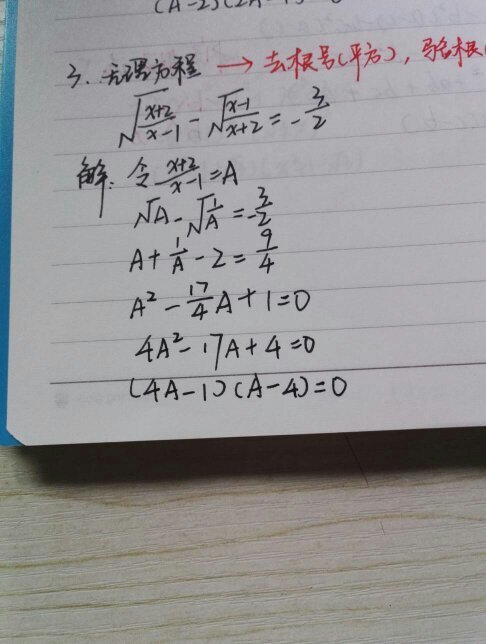 3. 无理方程 → 去根号(平方), 验根
√((x+2)/(x-1)) - √((x-1)/(x+2)) = -3/2
解: 令 (x+2)/(x-1) = A
√A - √(1/A) = -3/2
A + 1/A - 2 = 9/4
A² - 17/4 A + 1 = 0
4A² - 17A + 4 = 0
(4A-1)(A-4) = 0